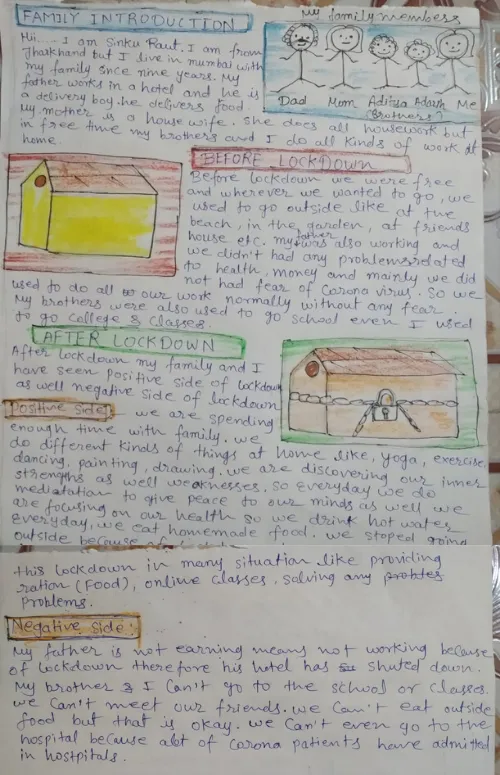 FAMILY INTRODUCTION
Hii..... I am Sinku Raut. I am from
Jharkhand but I live in mumbai with
my family since nine years. My
father works in a hotel and he is
a delivery boy. he delivers food.
My mother is a house wife. She does all housework but
in free time my brothers and I do all kinds of work at
home.
My family members
Dad Mom Aditya Adarsh Me
(Brothers)
BEFORE LOCKDOWN
Before lockdown we were free
and wherever we wanted to go, we
used to go outside like at the
beach, in the garden, at friends
house etc. my father was also working and
we didn't had any problems related
to health, money and mainly we did
not had fear of Corona virus. So we
used to do all our work normally without any fear
My brothers were also used to go school even I used
to go college & classes.
AFTER LOCKDOWN
After lockdown my family and I
have seen positive side of lockdown
as well negative side of lockdown
Positive side:- we are spending
enough time with family. we
do different kinds of things at home like, yoga, exercise,
dancing, painting, drawing. we are discovering our inner
strengths as well weaknesses. So everyday we do
mediatation to give peace to our minds as well we
are focusing on our health so we drink hot water
everyday, we eat homemade food. we stoped going
outside because of
this lockdown in many situation like providing
ration (Food), online classes, solving any probtes
problems.
Negative side:
My father is not earning means not working because
of lockdown therefore his hotel has shuted down.
My brother & I can't go to the school or classes.
we can't meet our friends. we can't eat outside
food but that is okay. we can't even go to the
hospital because alot of corona patients have admitted
in hostpitals.